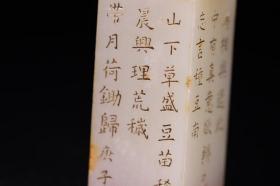 相與還
中有真意欲辨
忘言種豆南
山下草盛豆苗稀
晨興理荒穢
帶月荷鋤歸 庚子